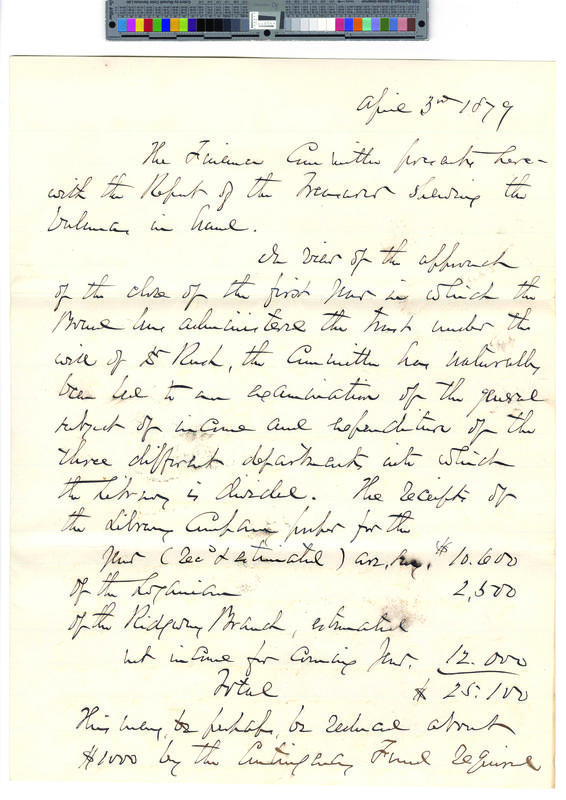 April 3rd 1879
The Finance Committee presents here-
with the Report of the Treasurer showing the
balances in hand.
In view of the approach
of the close of the first year in which the
Board has administered the trust under the
will of Dr Rush, the Committee has naturally
been led to an examination of the general
subject of income and expenditure of the
three different departments into which
the Library is divided. The receipts of
the Library Company proper for the
year (recd & estimated) are, say, $ 10.600
of the Loganian 2,500
of the Ridgway Branch, estimated
net income for coming year. 12.000
Total $ 25.100
This may, be perhaps, be reduced about
$1000 by the Contingency Fund required